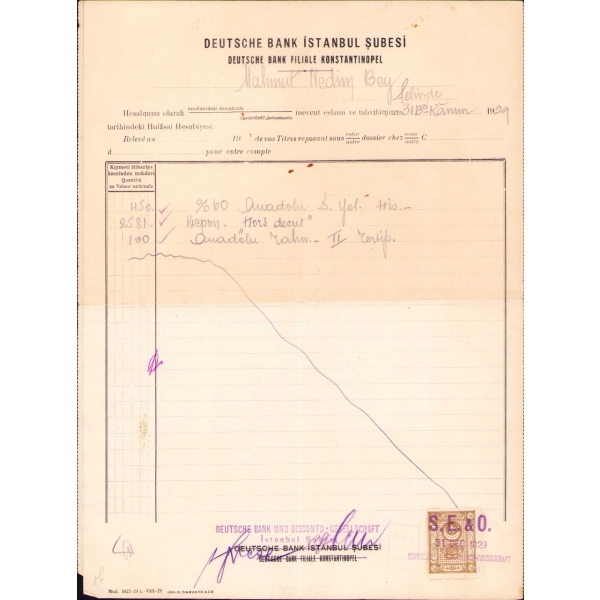 DEUTSCHE BANK İSTANBUL ŞUBESİ
DEUTSCHE BANK FILIALE KONSTANTINOPEL
Mahmut Nedim Bey
Hesabınıza olarak mevcut esham ve tahvilâtınızın 31 Bci Kânun 1929
tarihindeki Hulâsai Hesabiyesi.
Relevé au 19 de vos Titres reposant sous votre/notre dossier chez C
à pour votre compte
Kıymeti itibariye
üzerinden mıktarı
Quantité
ou Valeur nominale
450.- % 60 Anadolu D. Yol. His.-
2581.- Kepon. "Hors decret"
100 Anadolu Tahv.- II Tertip.
DEUTSCHE BANK UND DISCONTO-GESELLSCHAFT
İstanbul Şubesi
DEUTSCHE BANK İSTANBUL ŞUBESİ
DEUTSCHE BANK FILIALE KONSTANTINOPEL
S. E. & O.
31 DEC 1929
Mod. 5627-24 c.-VIII-29